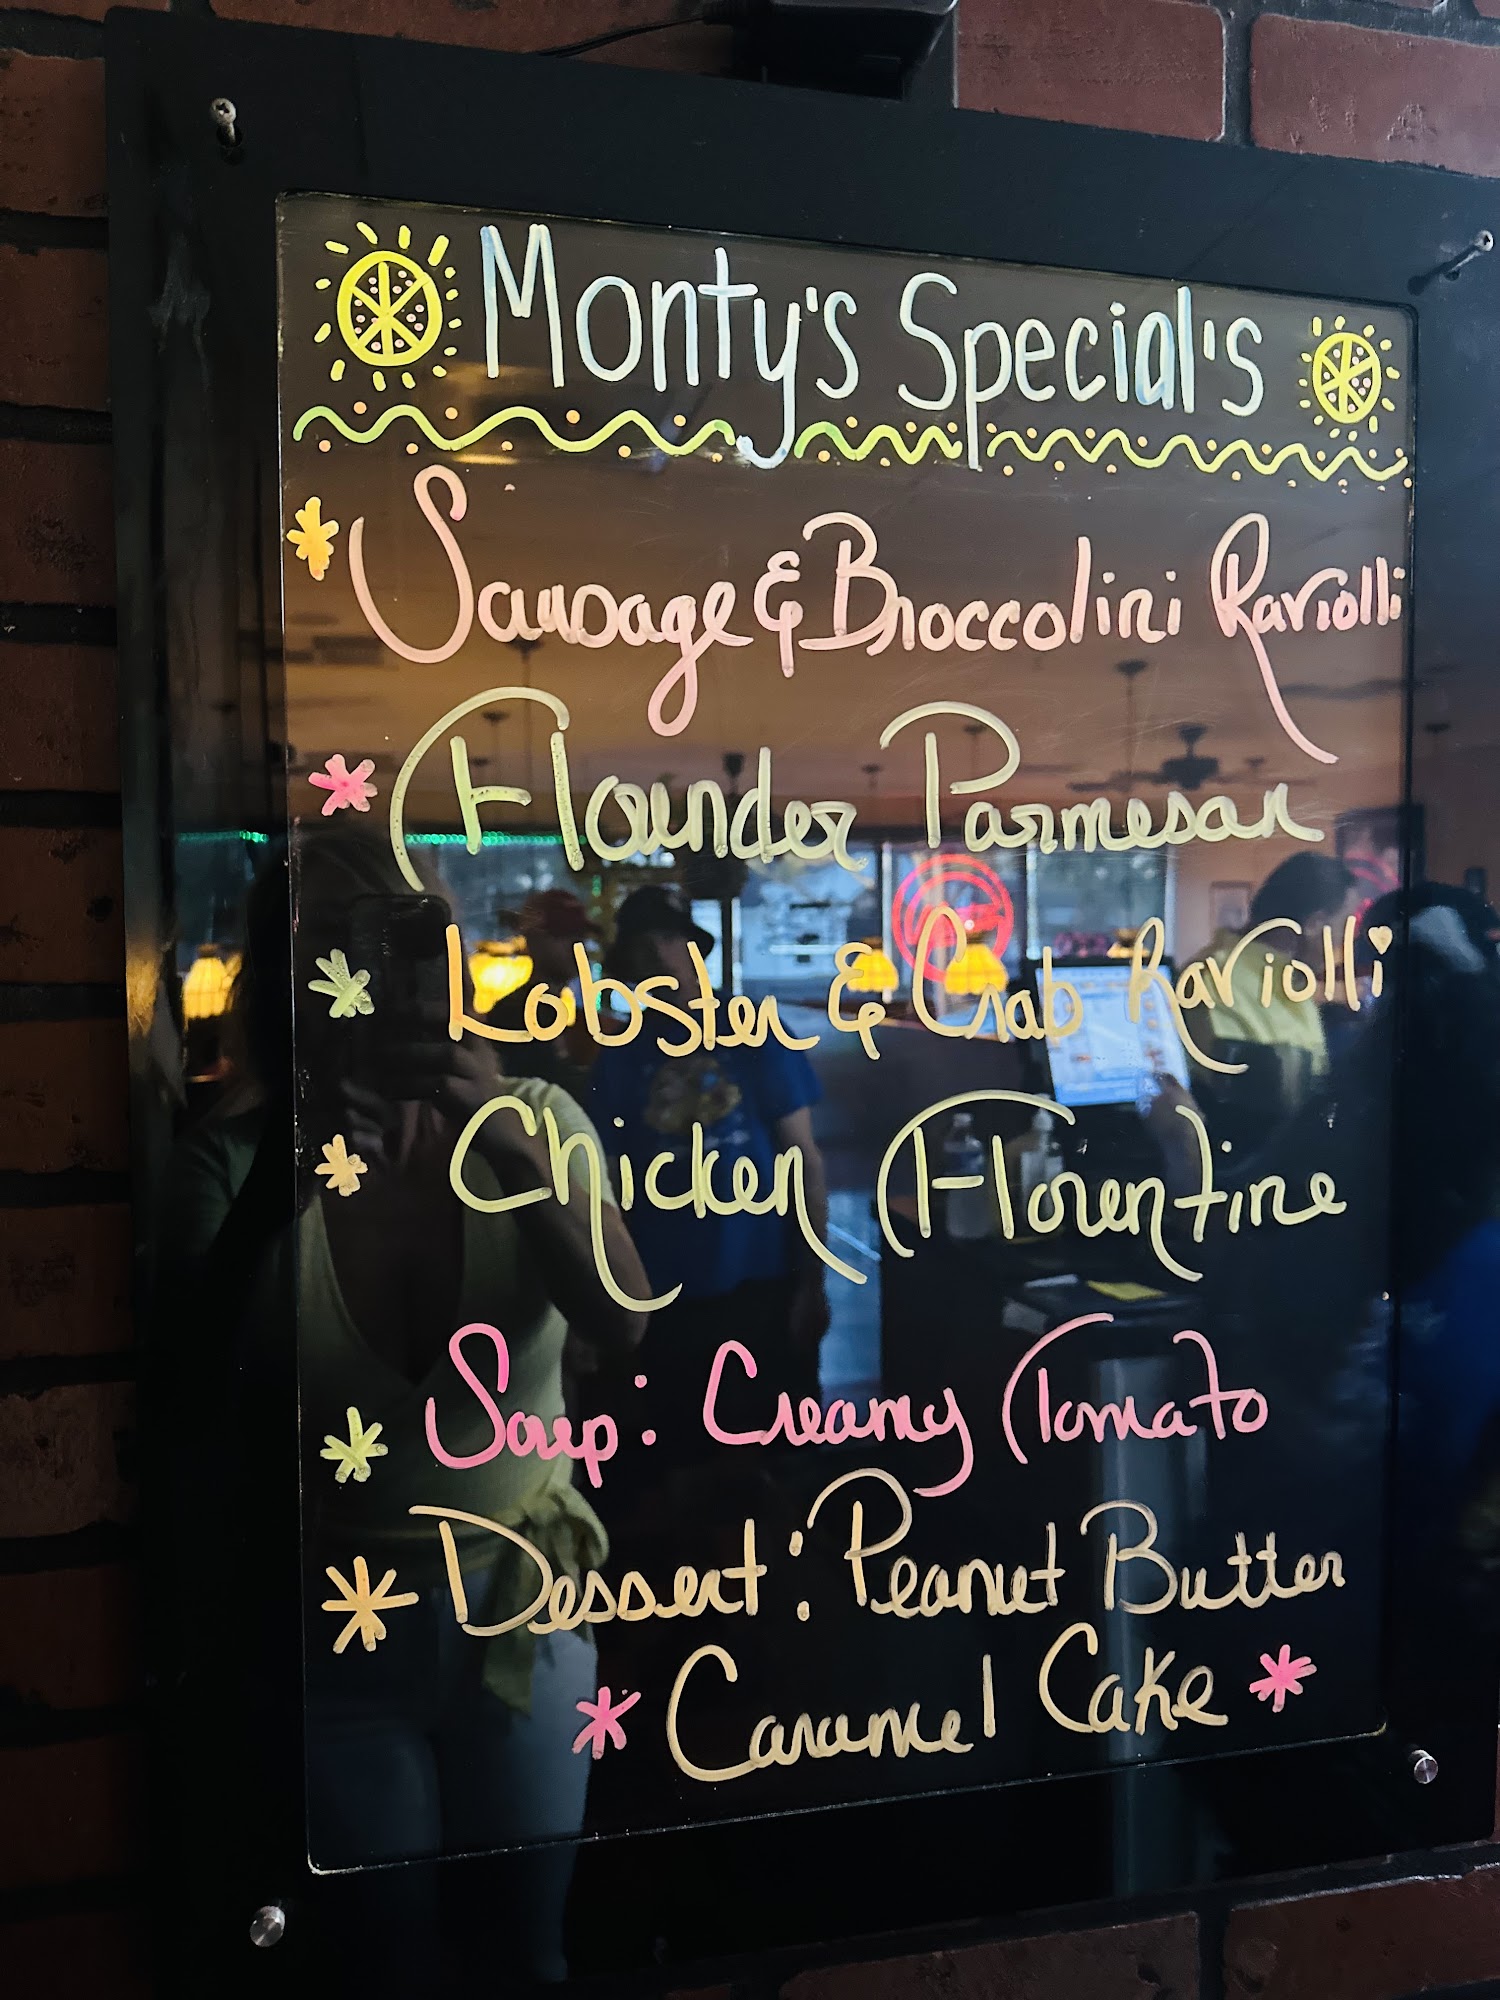 Monty's Special's
Sausage & Broccolini Raviolli
Flounder Parmesan
Lobster & Crab Raviolli
Chicken Florentine
Soup: Creamy Tomato
Dessert: Peanut Butter
Caramel Cake